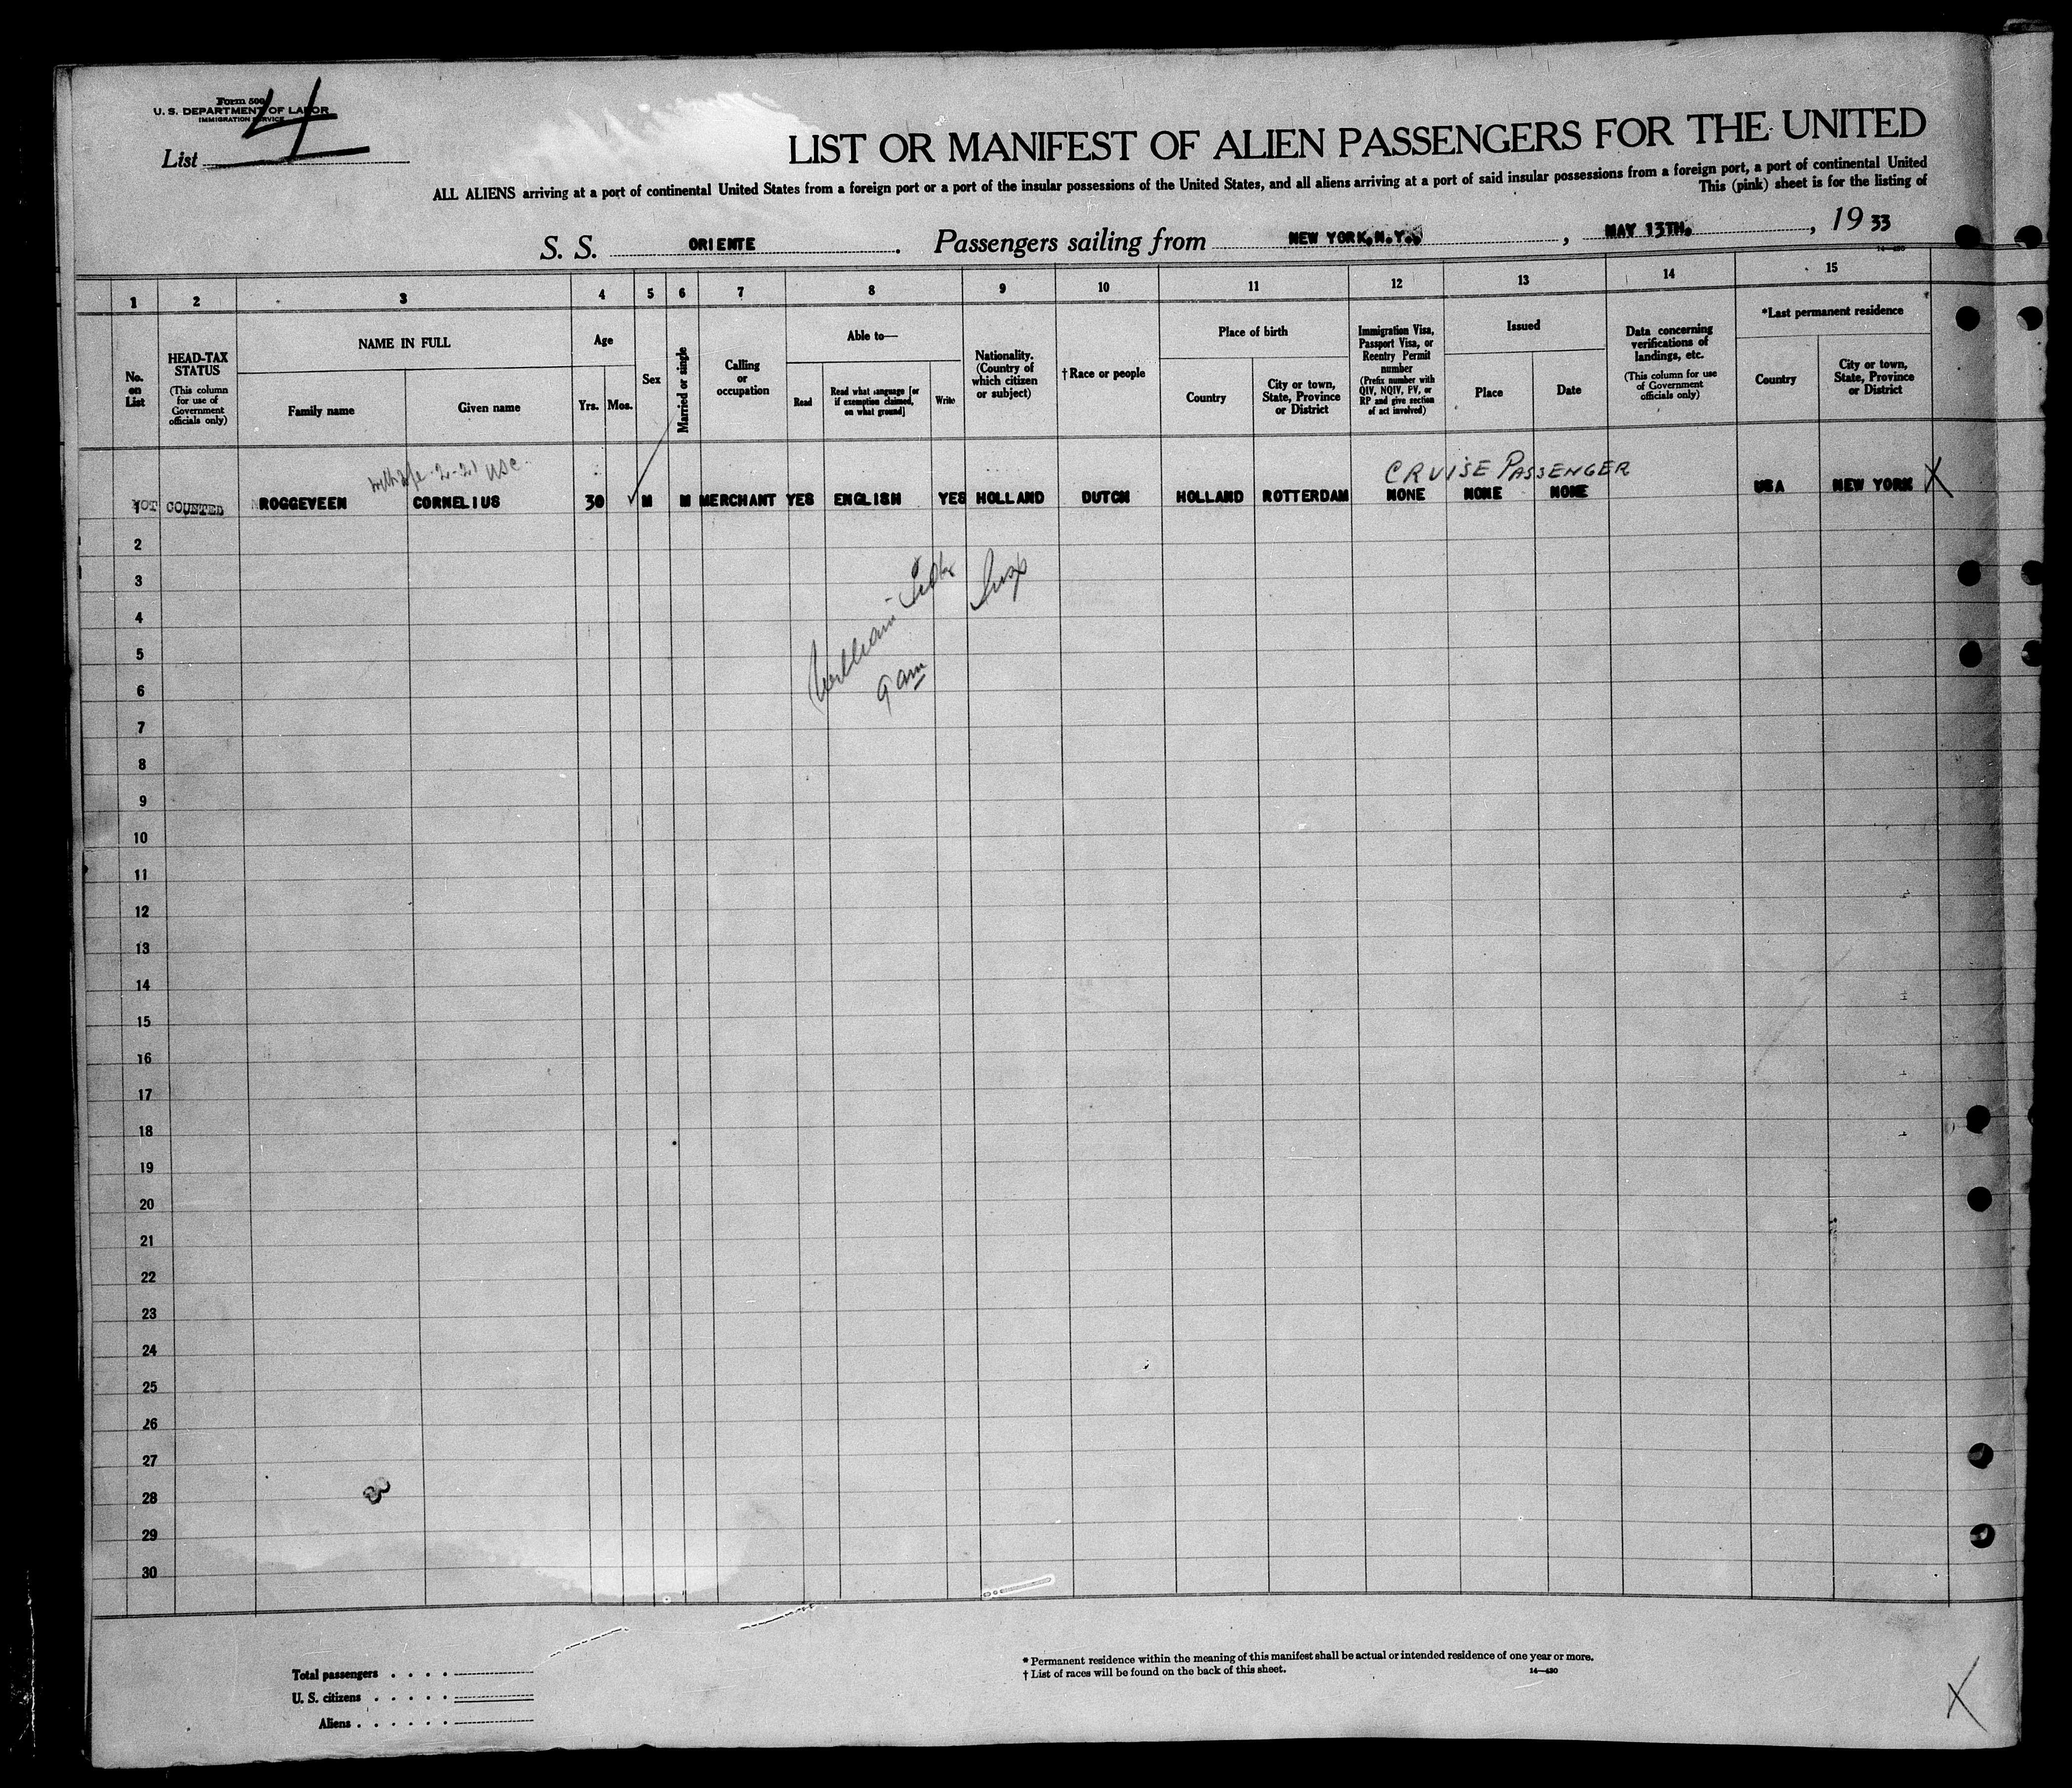 Form 500
U. S. DEPARTMENT OF LABOR
IMMIGRATION SERVICE
List 4
LIST OR MANIFEST OF ALIEN PASSENGERS FOR THE UNITED
ALL ALIENS arriving at a port of continental United States from a foreign port or a port of the insular possessions of the United States, and all aliens arriving at a port of said insular possessions from a foreign port, a port of continental United
This (pink) sheet is for the listing of
S. S. ORIENTE. Passengers sailing from NEW YORK, N.Y., MAY 13TH., 1933
14—430
1 2 3 4 5 6 7 8 9 10 11 12 13 14 15
No. on List
HEAD-TAX STATUS
(This column for use of Government officials only)
NAME IN FULL
Family name
Given name
Age
Yrs. Mos.
Sex
Married or single
Calling or occupation
Able to—
Read
Read what language [or if exemption claimed, on what ground]
Write
Nationality. (Country of which citizen or subject)
†Race or people
Place of birth
Country
City or town, State, Province or District
Immigration Visa, Passport Visa, or Reentry Permit number
(Prefix number with QIV, NQIV, PV, or RP and give section of act involved)
Issued
Place
Date
Data concerning verifications of landings, etc.
(This column for use of Government officials only)
*Last permanent residence
Country
City or town, State, Province or District
CRUISE PASSENGER
1 NOT COUNTED ROGGEVEEN CORNELIUS 30 ✓ M M MERCHANT YES ENGLISH YES HOLLAND DUTCH HOLLAND ROTTERDAM NONE NONE NONE USA NEW YORK X
2
3
4
5
6
7
8
9
10
11
12
13
14
15
16
17
18
19
20
21
22
23
24
25
26
27
28
29
30
William
9 am
Total passengers
U. S. citizens
Aliens
* Permanent residence within the meaning of this manifest shall be actual or intended residence of one year or more.
† List of races will be found on the back of this sheet.
14—430
X